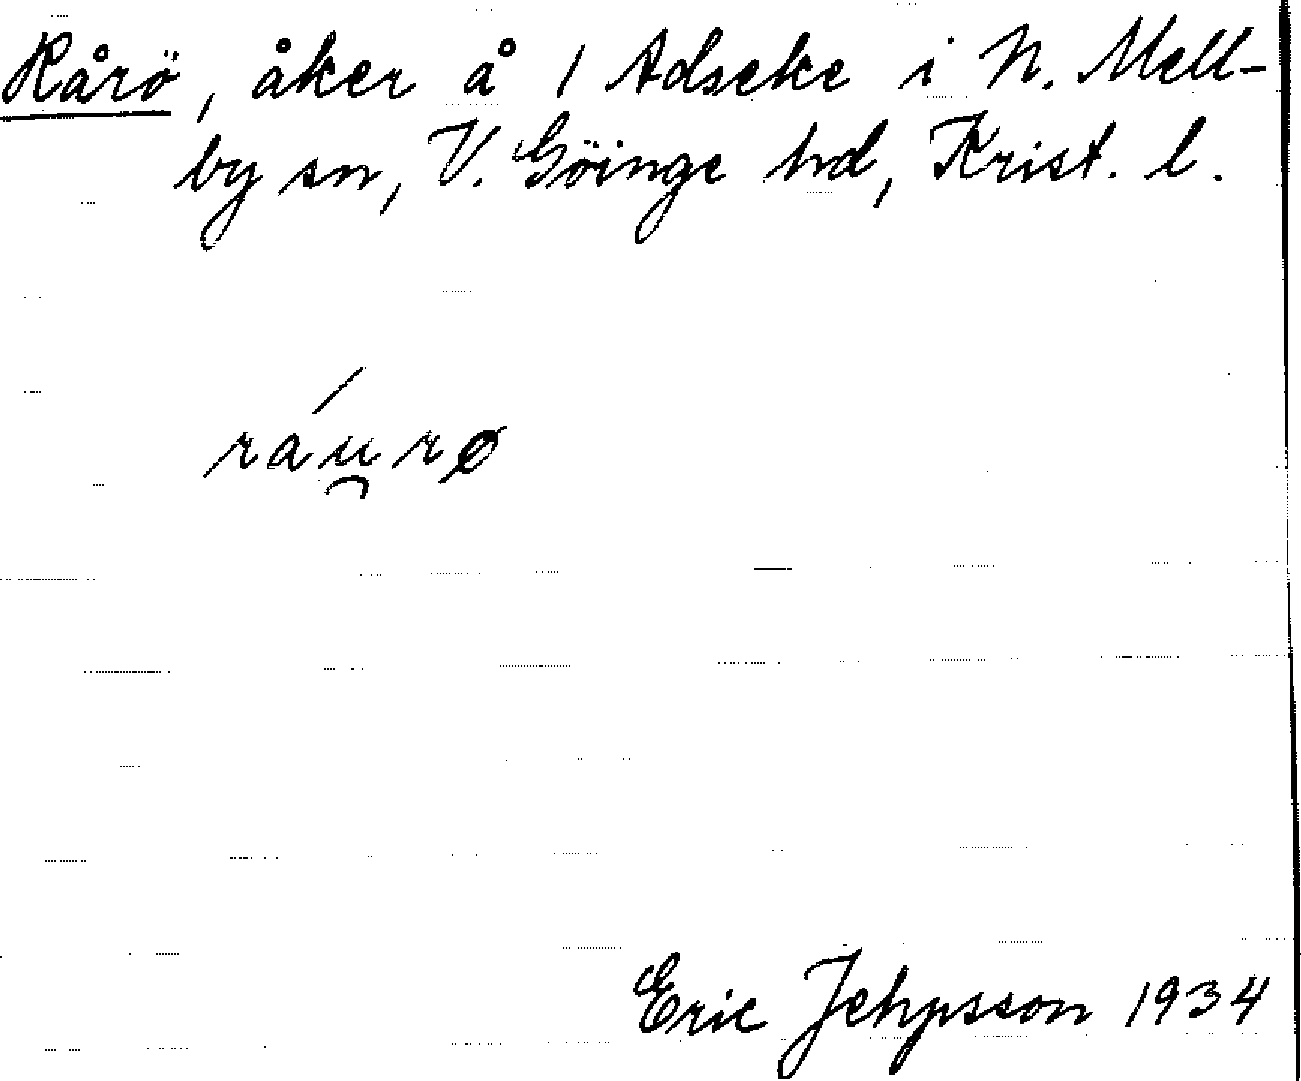 Rårö, åker å 1 Adseke i N. Mell-
by sn, V. Göinge hd, Krist. l.
ráu̯rø
Eric Jehpsson 1934